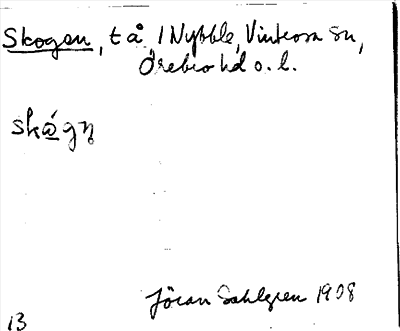 Skogen, t å, 1 Nybble, Vintrosa sn,
Örebro hd o. l.
skågn̥
Jöran Sahlgren 1908
13